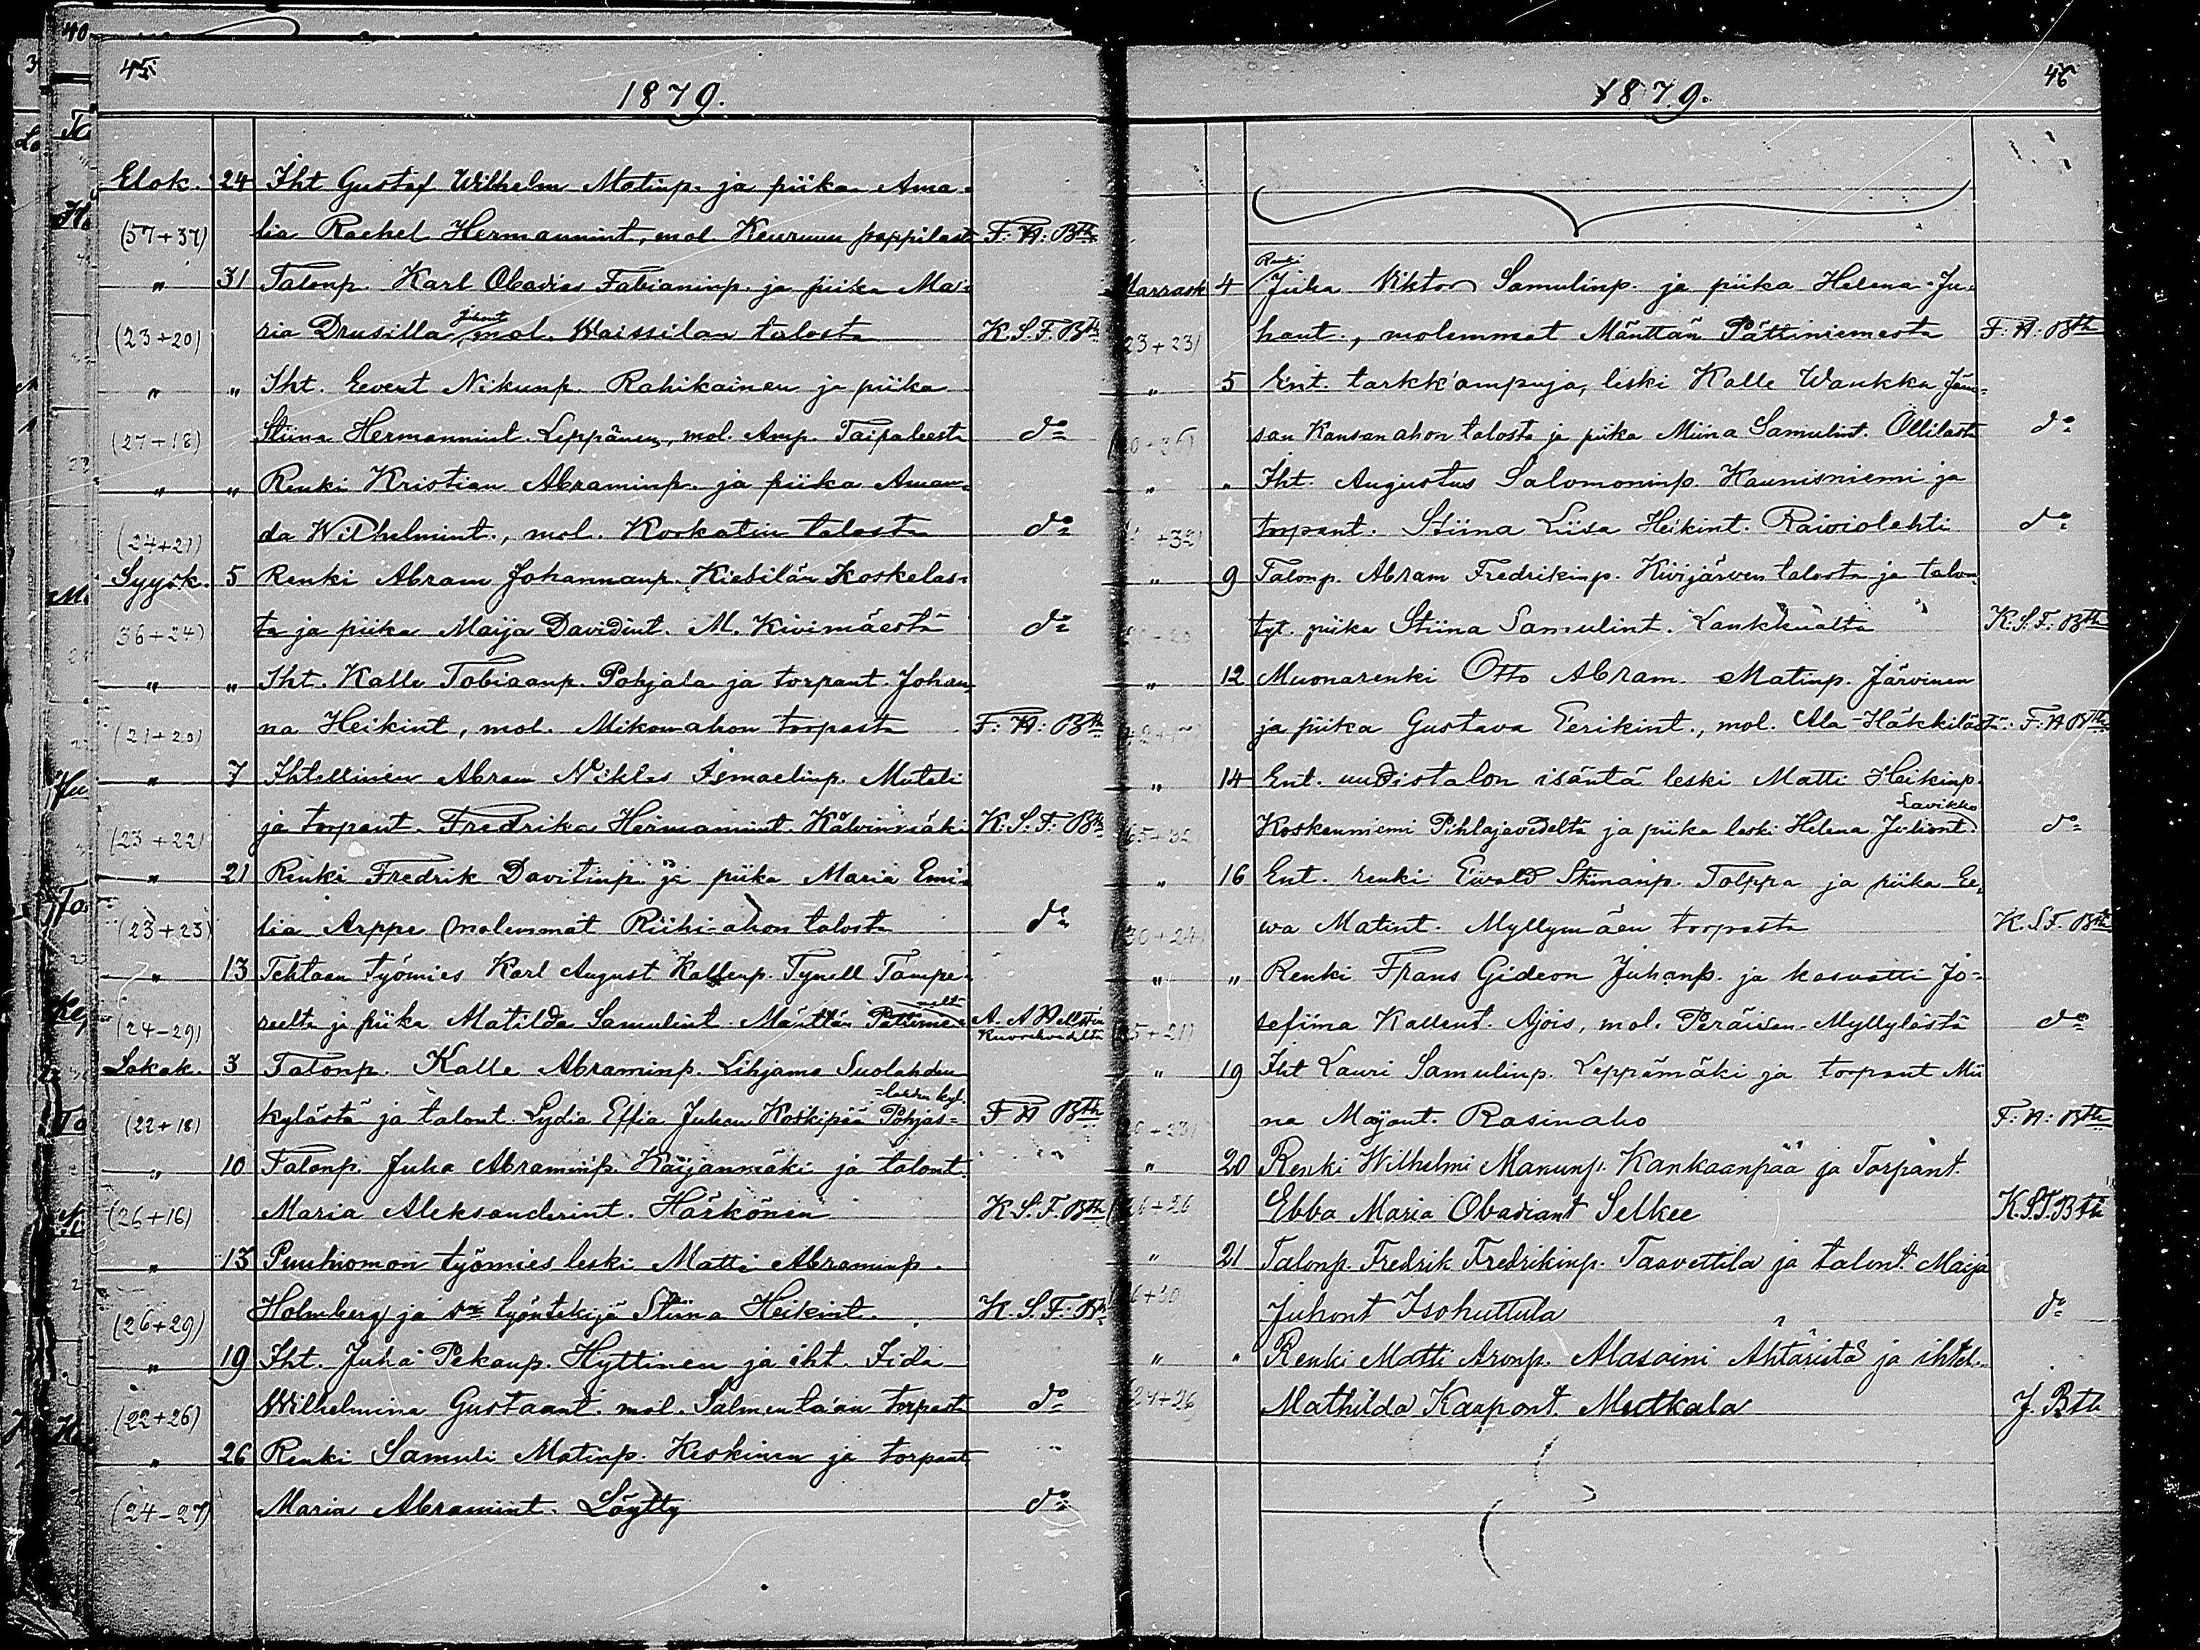 45
1879.
Elok. 24 Iht Gustaf Wilhelm Matinp. ja piika Ama-
(57+37) lia Rachel Hermannint, mol Keuruun pappilasta F: A: Bth
" 31 Talonp. Karl Obadias Fabianinp. ja piika Ma-
(23+20) ria Drusilla Juhont, mol. Waissilan talosta K.S.F. Bth
" " Iht. Eevert Nikunp. Rahikainen ja piika
(27+18) Stiina Hermannint. Leppänen, mol. Amp. Taipaleesta do
" " Renki Kristian Abraminp. ja piika Aman-
(24+21) da Wilhelmint., mol. Korkatin talosta do
Syysk. 5 Renki Abram Johannanp. Kiesilän Koskelas-
36+24) ta ja piika Maija Davidint. M. Kivimäestä do
" " Iht. Kalle Tobiaanp. Pohjala ja torpant. Johan-
(21+20) na Heikint, mol. Mikonahon torpasta F: A: Bth
" 7 Ihtellinen Abram Niklas Ismaelinp. Muteli
(23+22) ja torpant. Fredrika Hermannint. Kalvinmäki K.S.F. Bth
" 21 Renki Fredrik Davitinp. ja piika Maria Emi-
(23+23) lia Arppe molemmat Riihi-ahon talosta do
" 13 Tehtaan työmies Karl August Kallenp. Tynell Tampe-
(24-29) reelta ja piika Matilda Samulint. Mänttän A. A Hellsten
Lokak. 3 Talonp. Kalle Abraminp. Lihjamo Suolahden
(22+18) kylästä ja talont. Lydia Effia Juhan Koskipää Pohjas-lahden kyl. F A Bth
" 10 Talonp. Juho Abraminp. Kaijanmäki ja talont.
(26+16) Maria Aleksanderint. Härkönen K.S.F. Bth
" 13 Puuhiomon työmies leski Matti Abraminp.
(26+29) Holmberg ja työntekijä Stiina Heikint. K.S.F. Bth
" 19 Iht. Juha Pekanp. Hyttinen ja iht. Fida
(22+26) Wilhelmina Gustaant. mol. Salmentaan torpasta do
" 26 Renki Samuli Matinp. Keskinen ja torpant
(24-27) Maria Abramint. Löytty do
46
1879.
Marrask 4 Renki Juha Viktor Samulinp. ja piika Helena Ju-
23+23) hant., molemmat Mänttän Pättiniemestä F: A: Bth
" 5 Ent. tarkk'ampuja, leski Kalle Wankka Jäm-
sän Kansanahon talosta ja piika Miina Samulint. Ollilasta do
" " Iht. Augustus Salomoninp. Kaunisniemi ja
+32) torpant. Stiina Liisa Heikint. Raiviolehti do
" 9 Talonp. Abram Fredrikinp. Kivijärven talosta ja talon
tyt. piika Stiina Samulint. K.S.F. Bth
" 12 Muonarenki Otto Abram Matinp. Järvinen
ja piika Gustava Eerikint., mol. Ala-Häkkilästä. F: A Bth
" 14 Ent. uudistalon isäntä leski Matti Heikinp.
65+32 Koskenniemi Pihlajavedeltä ja piika leski Helena Juliant. Lavikko do
" 16 Ent. renki Eivald Stiinanp. Tolppa ja piika Ee-
30+24 wa Matint. Myllymäen torpasta K.S.F. Bth
" " Renki Frans Gideon Juhanp. ja kasvatti Jo-
25+21) sefiina Kallent. Ajois, mol. Peräisen-Myllylästä do
" 19 Iht Lauri Samulinp. Leppämäki ja torpant Mii
20+23) na Maijant. Rasinaho F: A: Bth
" 20 Renki Wilhelmi Manunp. Kankaanpää ja Torpant.
26+26 Ebba Maria Obadiant Selkee K.S.F. Bth
" 21 Talonp. Fredrik Fredrikinp. Taavettila ja talont. Maija
Juhont Isohuttula do
" " Renki Matti Aronp. Alasaini Ähtäristä ja ihtel.
24+26 Mathilda Kaapont. Metkala J. Bth